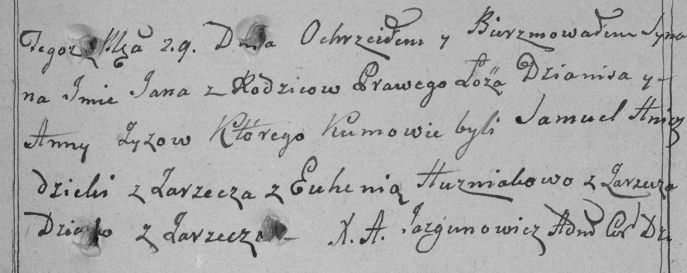 Tegoz Mca 29. Dnia Ochrzciłem y Bierzmowałem Syna
na Imie Jana z Rodzicow Prawego Łoża Dzianisa y
Anny Zyzow Którego Kumowie byli Samuel
z Zarzecza z Euhenią Huzniakowo z Zarzecza
z Zarzecza X. A. Jazgunowicz Adm